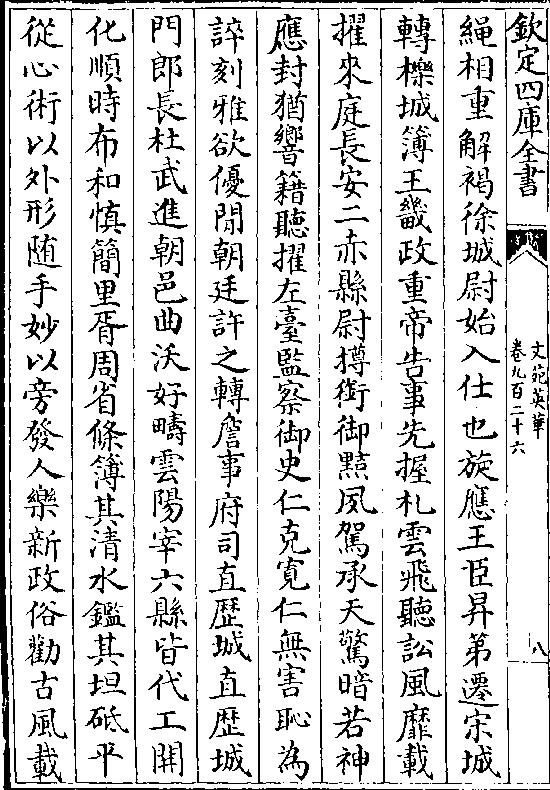 欽定四庫全書
文苑英華
卷九百二十六
八
繩相重解褐徐城尉始入仕也旋應王臣昇第遷宋城
轉櫟城簿王畿政重帝告事先握札雲飛聽訟風靡載
擢來庭長安二赤縣尉摶銜御黠夙駕承天驚暗若神
應封猶響籍聽擢左臺監察御史仁克寛仁無害恥為
誶刻雅欲優閒朝廷許之轉詹事府司直歴城直歴城
門郎長杜武進朝邑曲沃好疇雲陽宰六縣皆代工開
化順時布和慎簡里胥周省條簿其清水鑑其坦砥平
從心術以外形随手妙以旁發人樂新政俗勸古風載